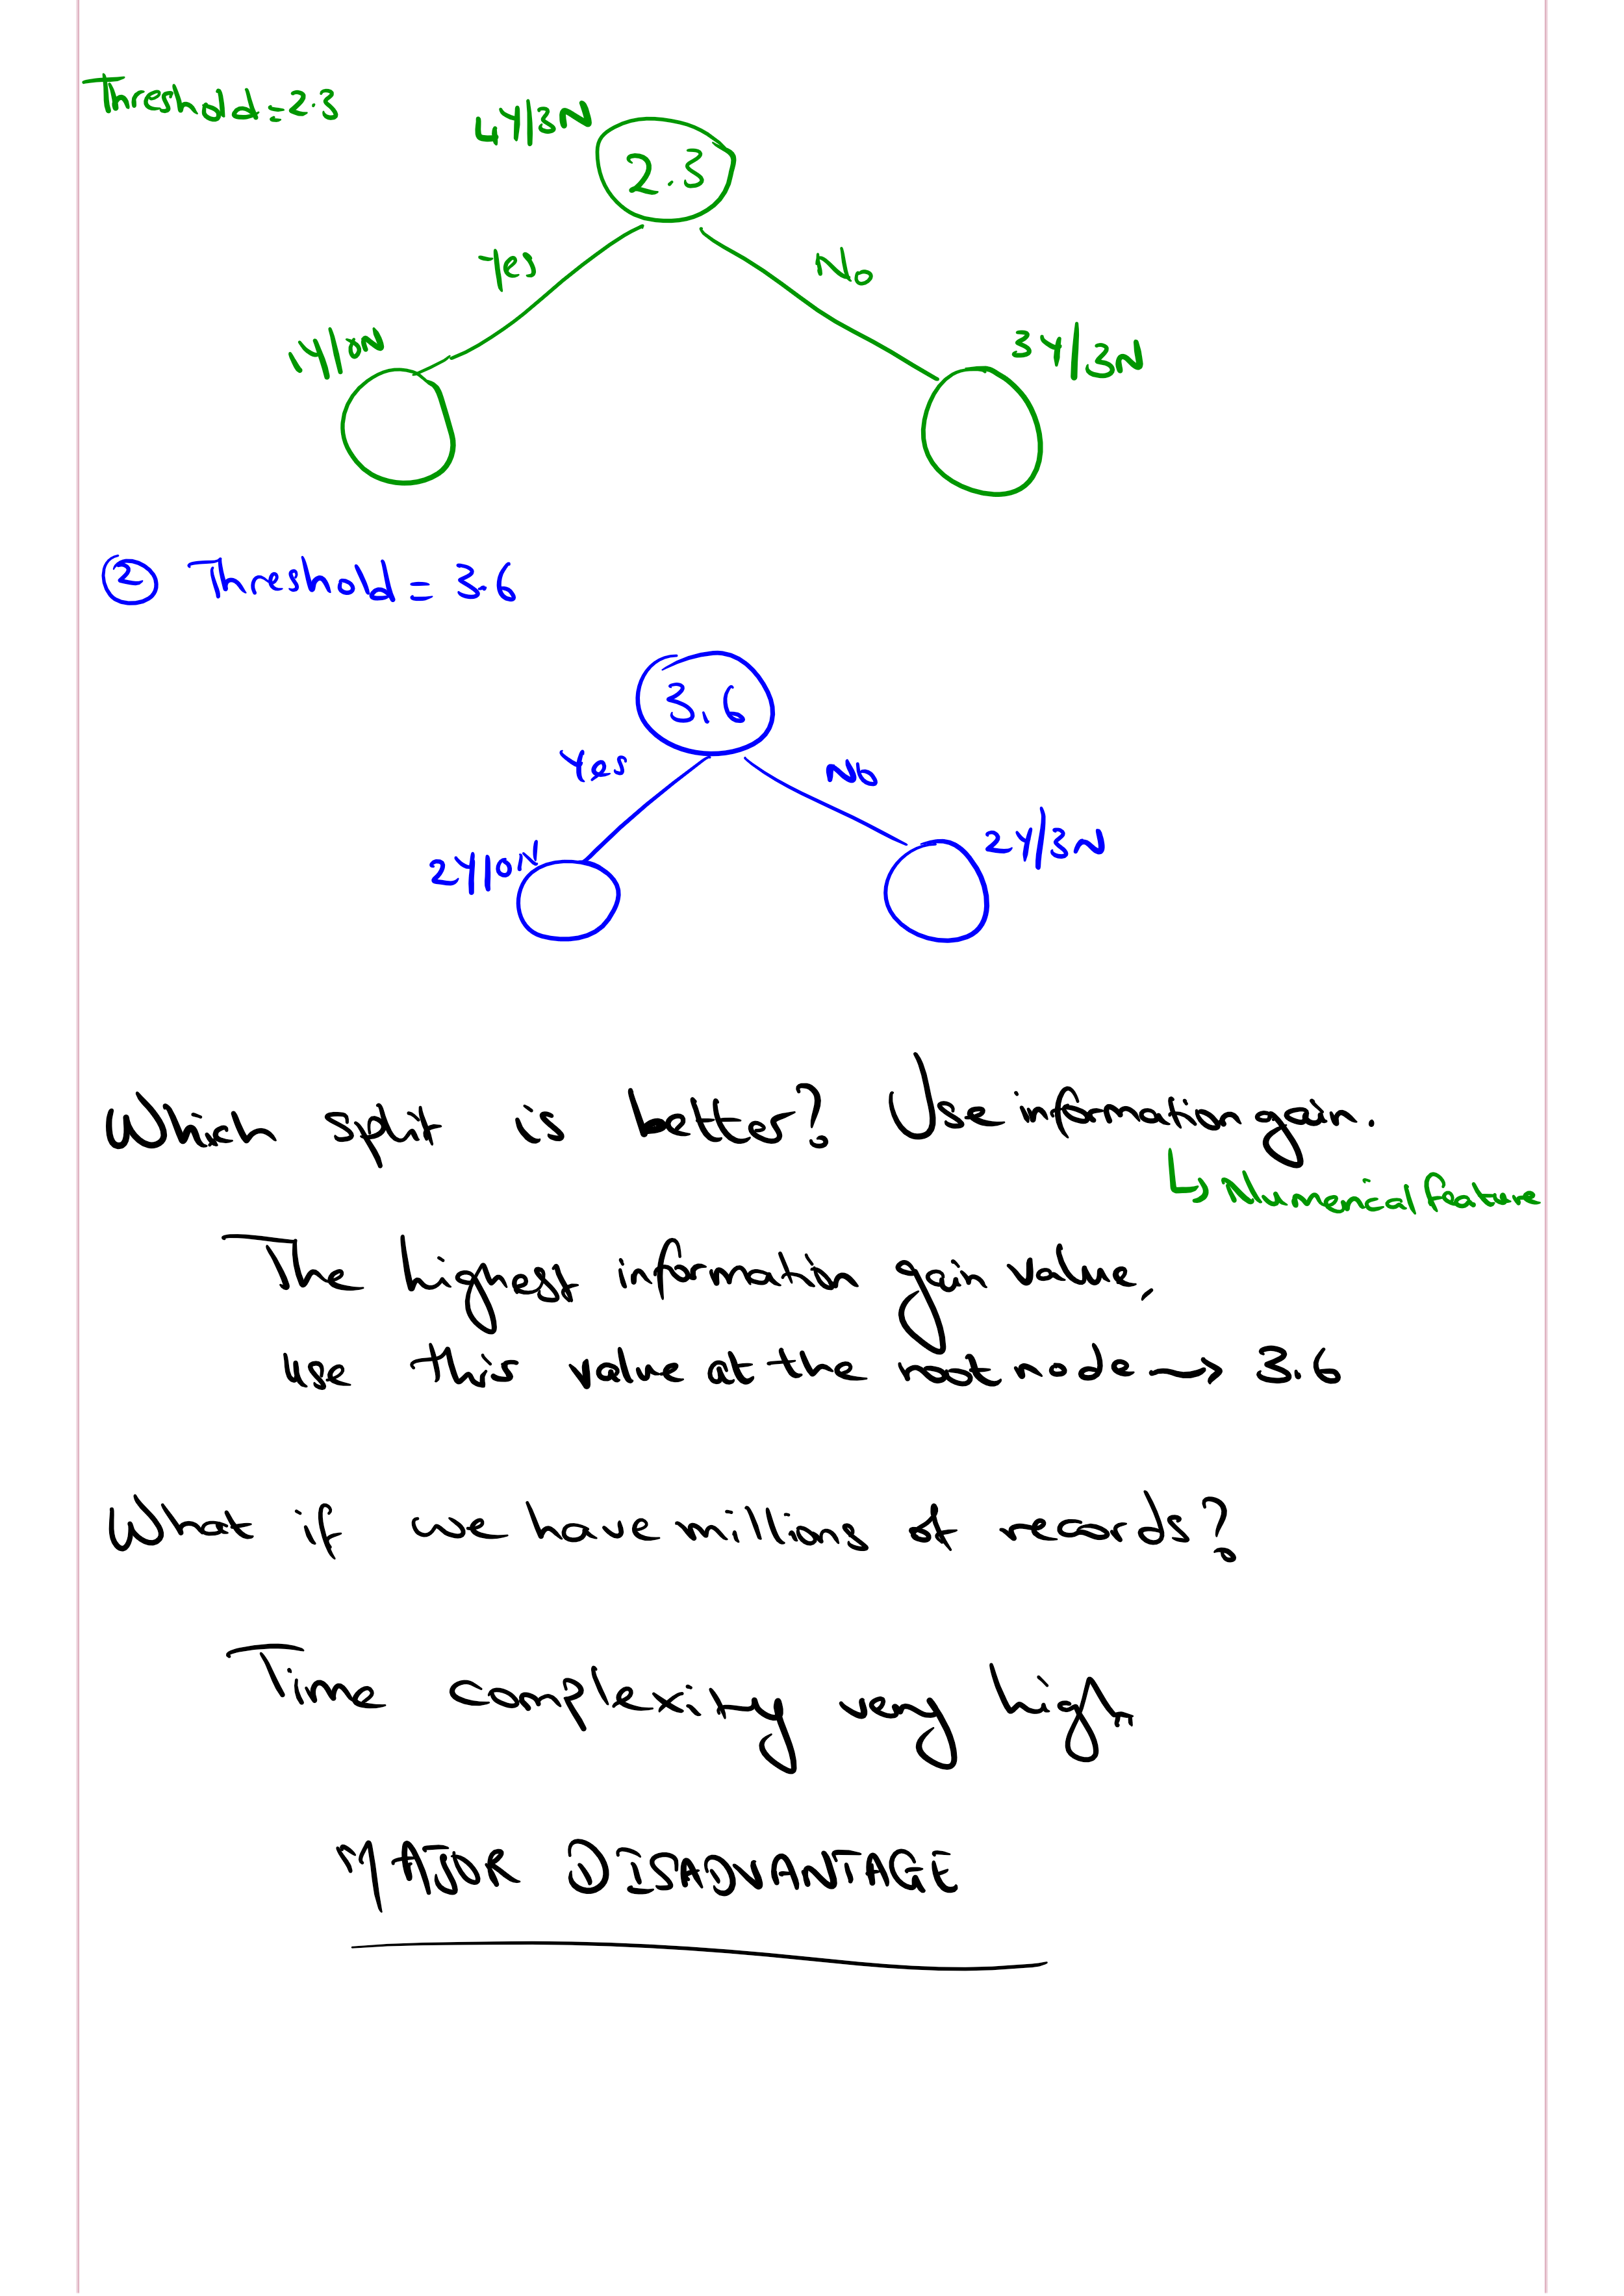 Threshold = 2.3
4Y|3N
2.3
Yes
No
1Y|0N
3Y|3N
② Threshold = 3.6
3.6
Yes
No
2Y|0N
2Y|3N
Which split is better? Use information gain.
↳ Numerical feature
The highest information gain value,
use this value at the root node → 3.6
What if we have millions of records?
Time complexity very high
MAJOR DISADVANTAGE